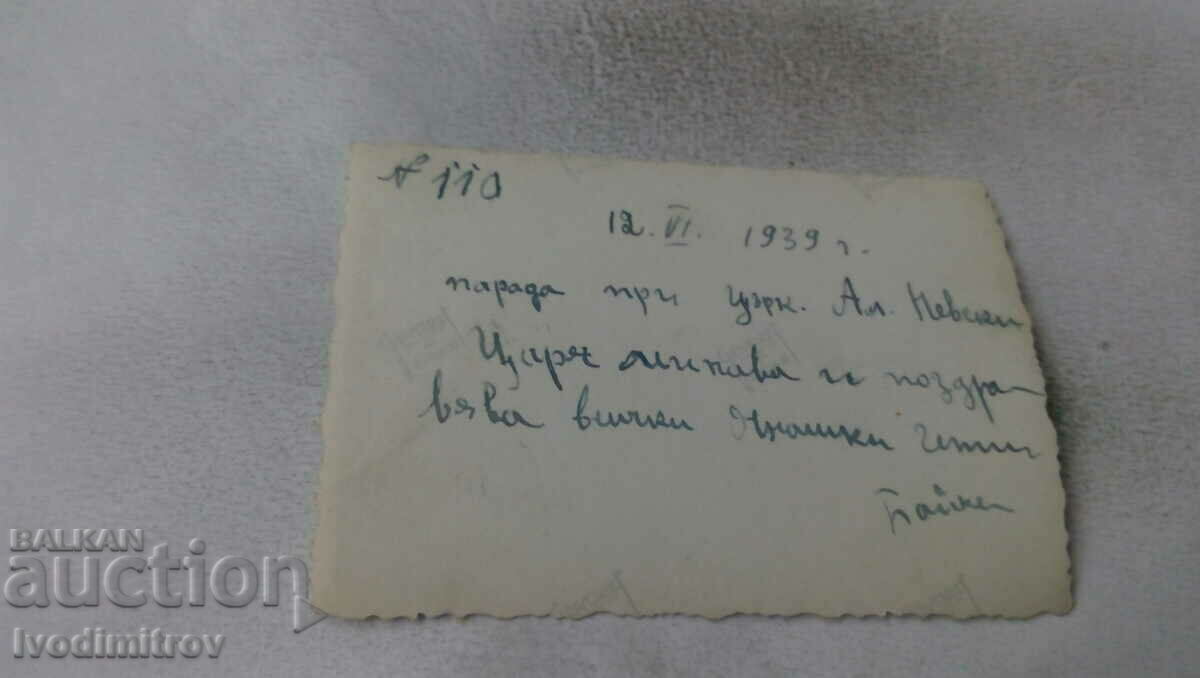 № 110
12. VI. 1939 г.
парада при църк. Ал. Невски
Царя минава и поздра-
вява всички юнашки чети
BALKAN
auction
Ivodimitrov